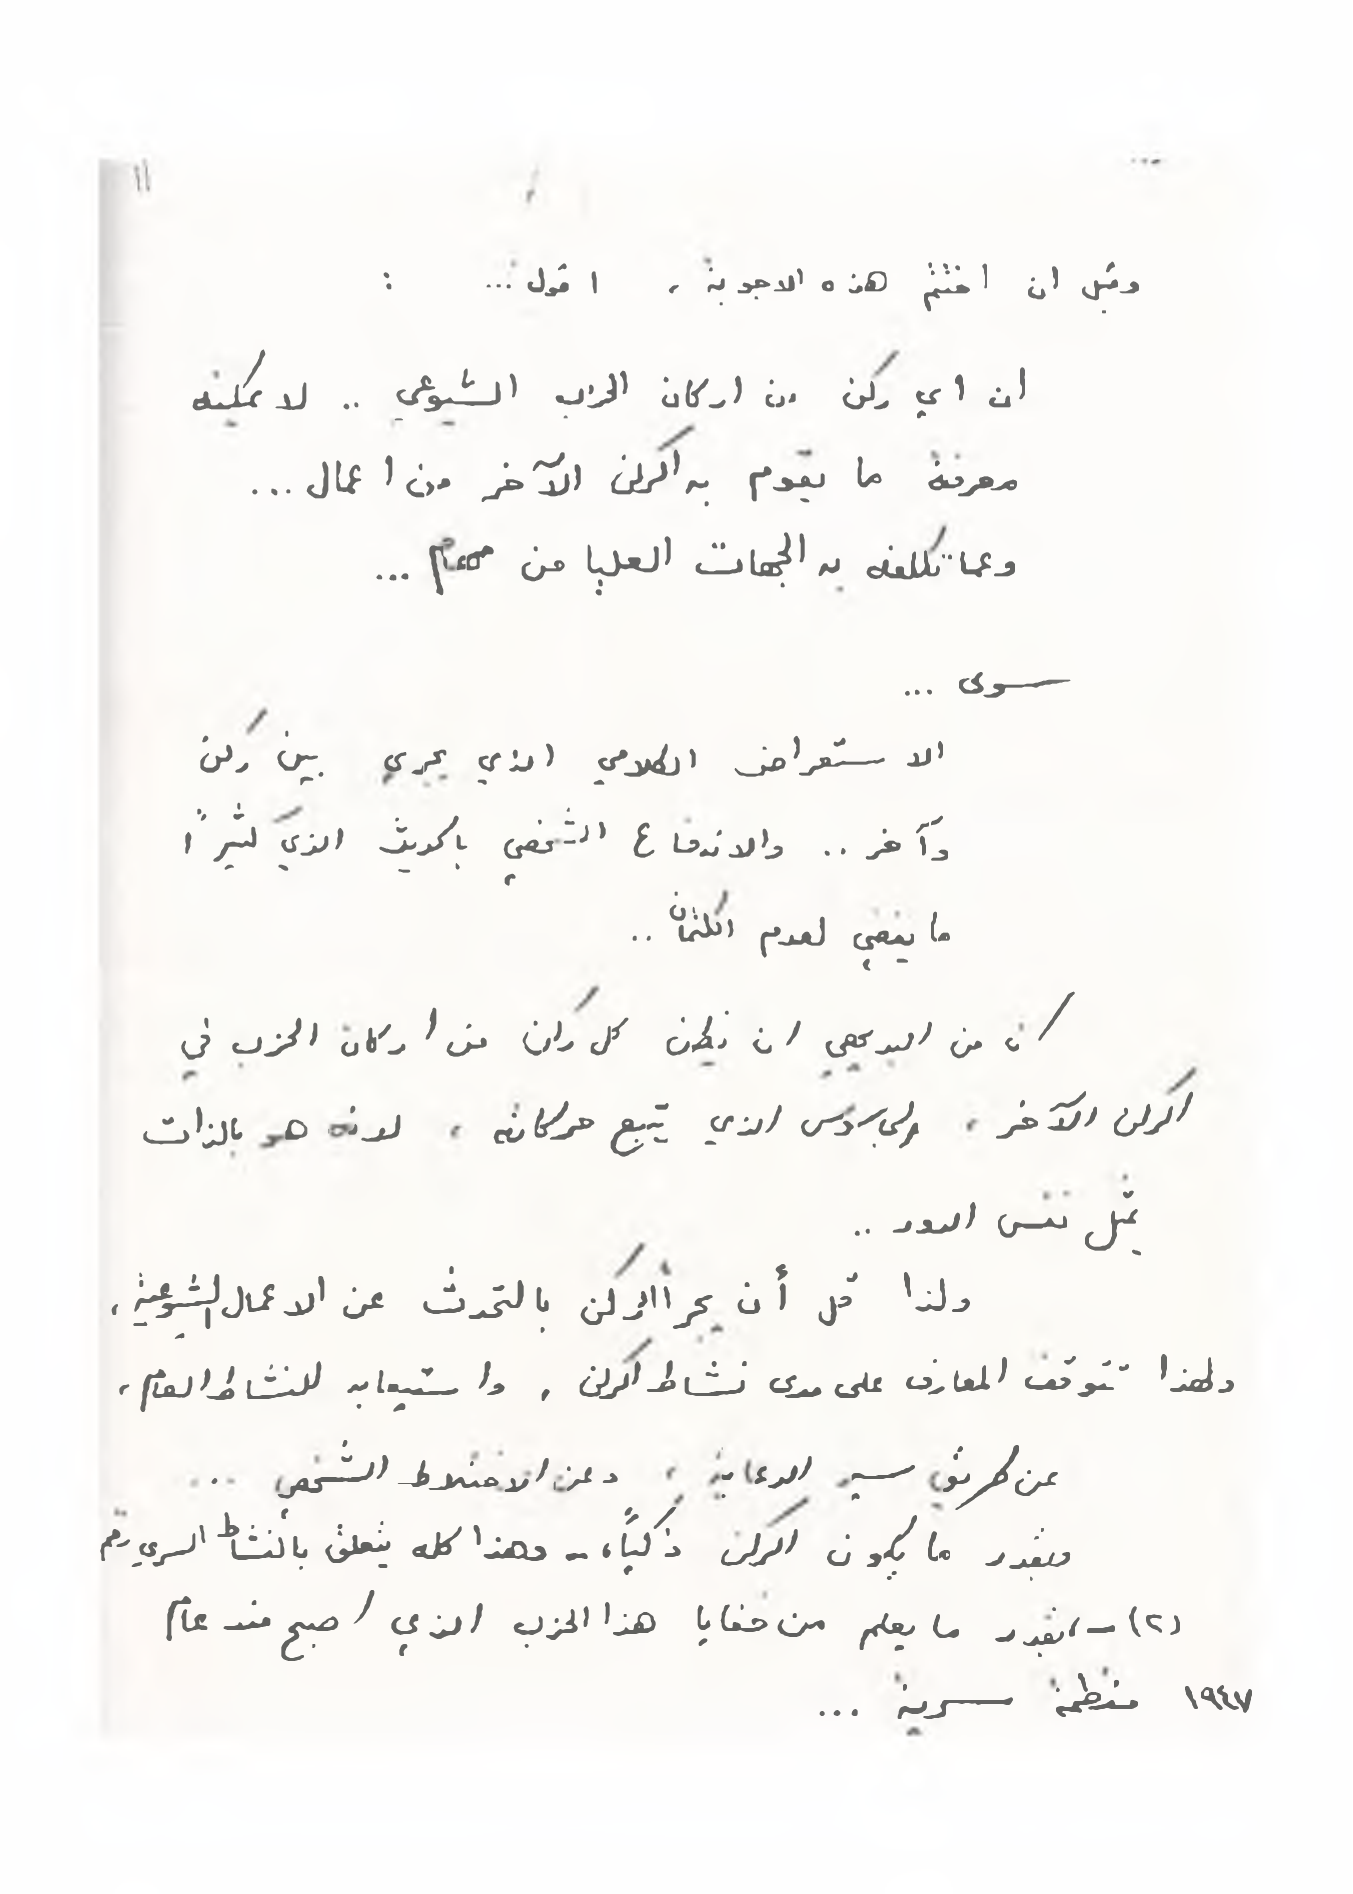 ١١
وقبل ان اختتم هذه الاجوبة ، اقول ... :
ان اي ركن من اركان الحزب الشيوعي .. لا يمكنه
معرفة ما يقوم به الركن الآخر من اعمال ...
وعما تكلفه به الجهات العليا من مهام ...
سوى ...
الاستعراض الكلامي الذي يجري بين ركن
وآخر .. والاندفاع الشخصي بالحديث الذي كثيرًا
ما يفضي لعدم الكتمان ..
كان من البديهي ان يظن كل ركن من اركان الحزب في
الركن الآخر ، الجاسوس الذي يتبع حركاته ، لانه هو بالذات
يمثل نفس الدور ..
ولذا قل أن يجرأ الركن بالتحدث عن الاعمال الشيوعية ،
ولهذا تتوقف المعارف على مدى نشاط الركن ، واستيعابه للنشاط العام ،
عن طريق سير الدعاية ، وعن الاختلاط الشخصي ...
وبقدر ما يكون الركن ذكيًا ، - وهذا كله يتعلق بالنشاط السري رقم
(٢) - ، بقدر ما يعلم من خفايا هذا الحزب الذي اصبح منذ عام
١٩٤٧ منظمة سرية ...